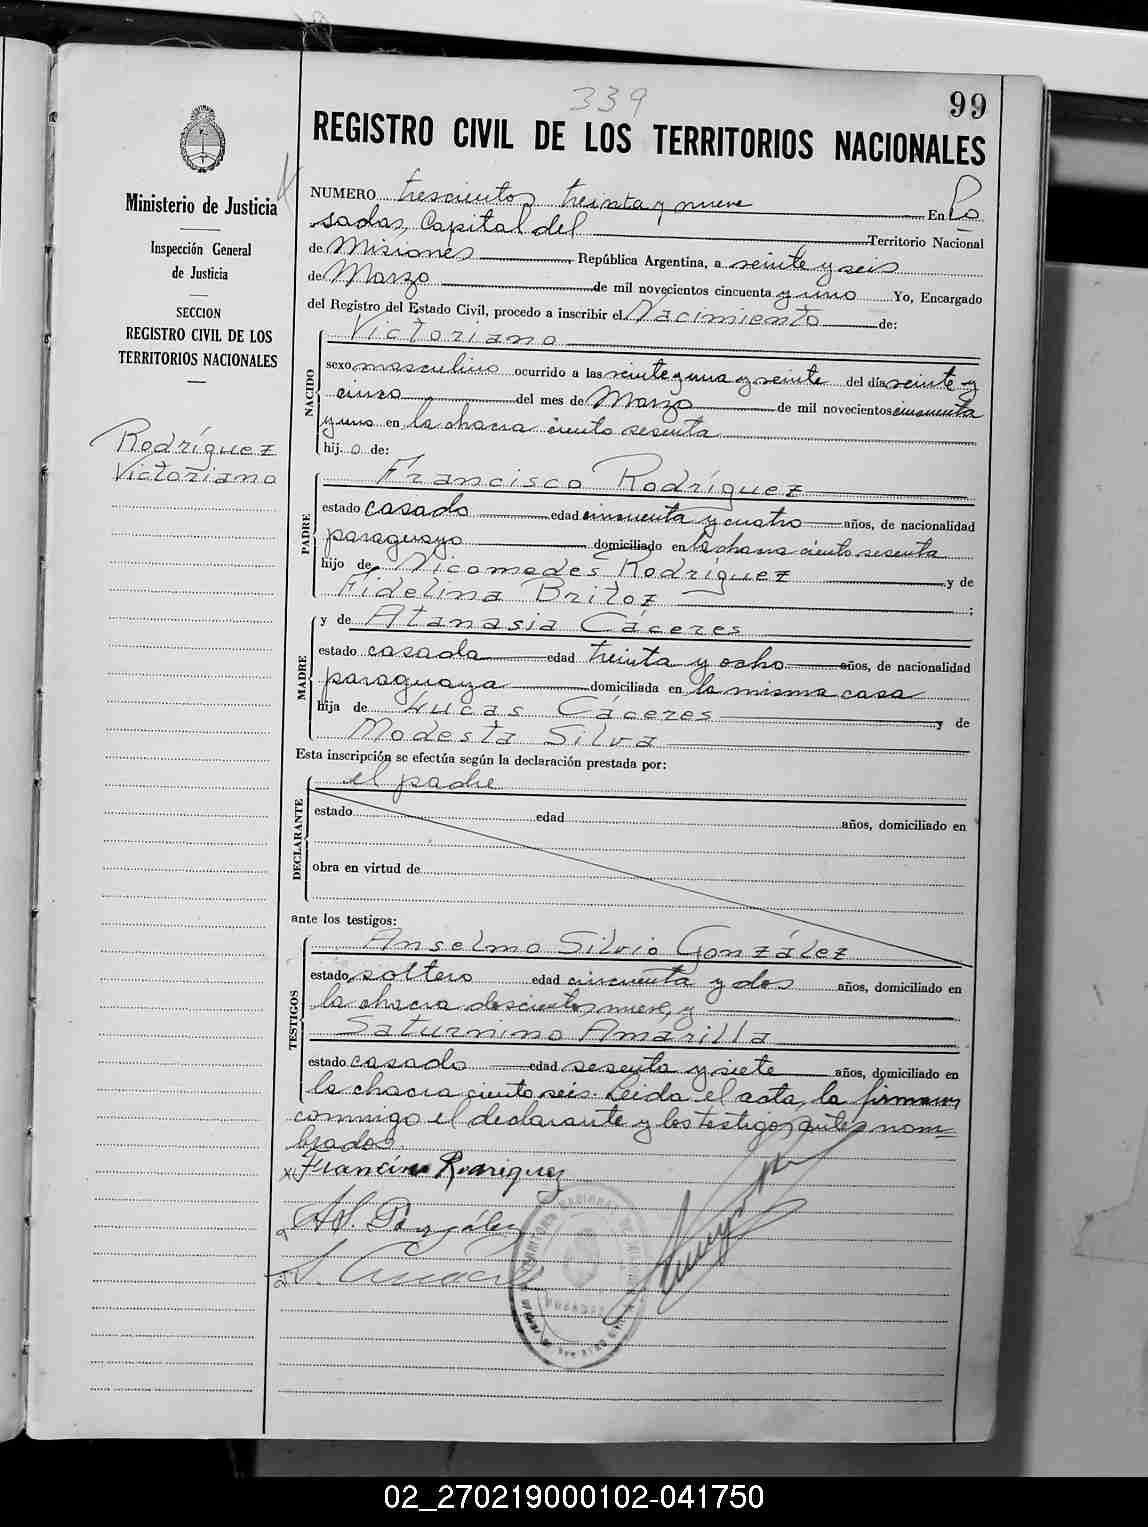 339
99
REGISTRO CIVIL DE LOS TERRITORIOS NACIONALES
Ministerio de Justicia
Inspección General
de Justicia
SECCION
REGISTRO CIVIL DE LOS
TERRITORIOS NACIONALES
Rodríguez
Victoriano
NUMERO trescientos treinta y nueve En Po
sadas, Capital del Territorio Nacional
de Misiones, República Argentina, a veinte y seis
de Marzo de mil novecientos cincuenta y uno Yo, Encargado
del Registro del Estado Civil, procedo a inscribir el Nacimiento de:
NACIDO
Victoriano
sexo masculino ocurrido a las veinte y una y veinte del día veinte y
cinco del mes de Marzo de mil novecientos cincuenta
y uno en la chacra ciento sesenta
hij. o de:
PADRE
Francisco Rodríguez
estado casado edad cincuenta y cuatro años, de nacionalidad
paraguayo domiciliado en la chacra ciento sesenta
hijo de Nicomedes Rodríguez y de
Fidelina Britoz ;
MADRE
y de Atanasia Cáceres
estado casada edad treinta y ocho años, de nacionalidad
paraguaya domiciliada en la misma casa
hija de Lucas Cáceres y de
Modesta Silva
Esta inscripción se efectúa según la declaración prestada por:
DECLARANTE
el padre
estado edad años, domiciliado en
obra en virtud de
ante los testigos:
TESTIGOS
Anselmo Silvio González
estado soltero edad cincuenta y dos años, domiciliado en
la chacra doscientos nueve, y
Saturnino Amarilla
estado casado edad sesenta y siete años, domiciliado en
la chacra ciento seis. Leida el acta, la firmaron
conmigo el declarante y los testigos antes nom=
brados.
Francisco Rodriguez
A. S. González
02_270219000102-041750